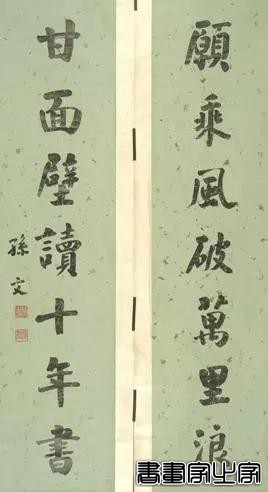 願乘風破萬里浪
甘面壁讀十年書
孫文
書畫家之字